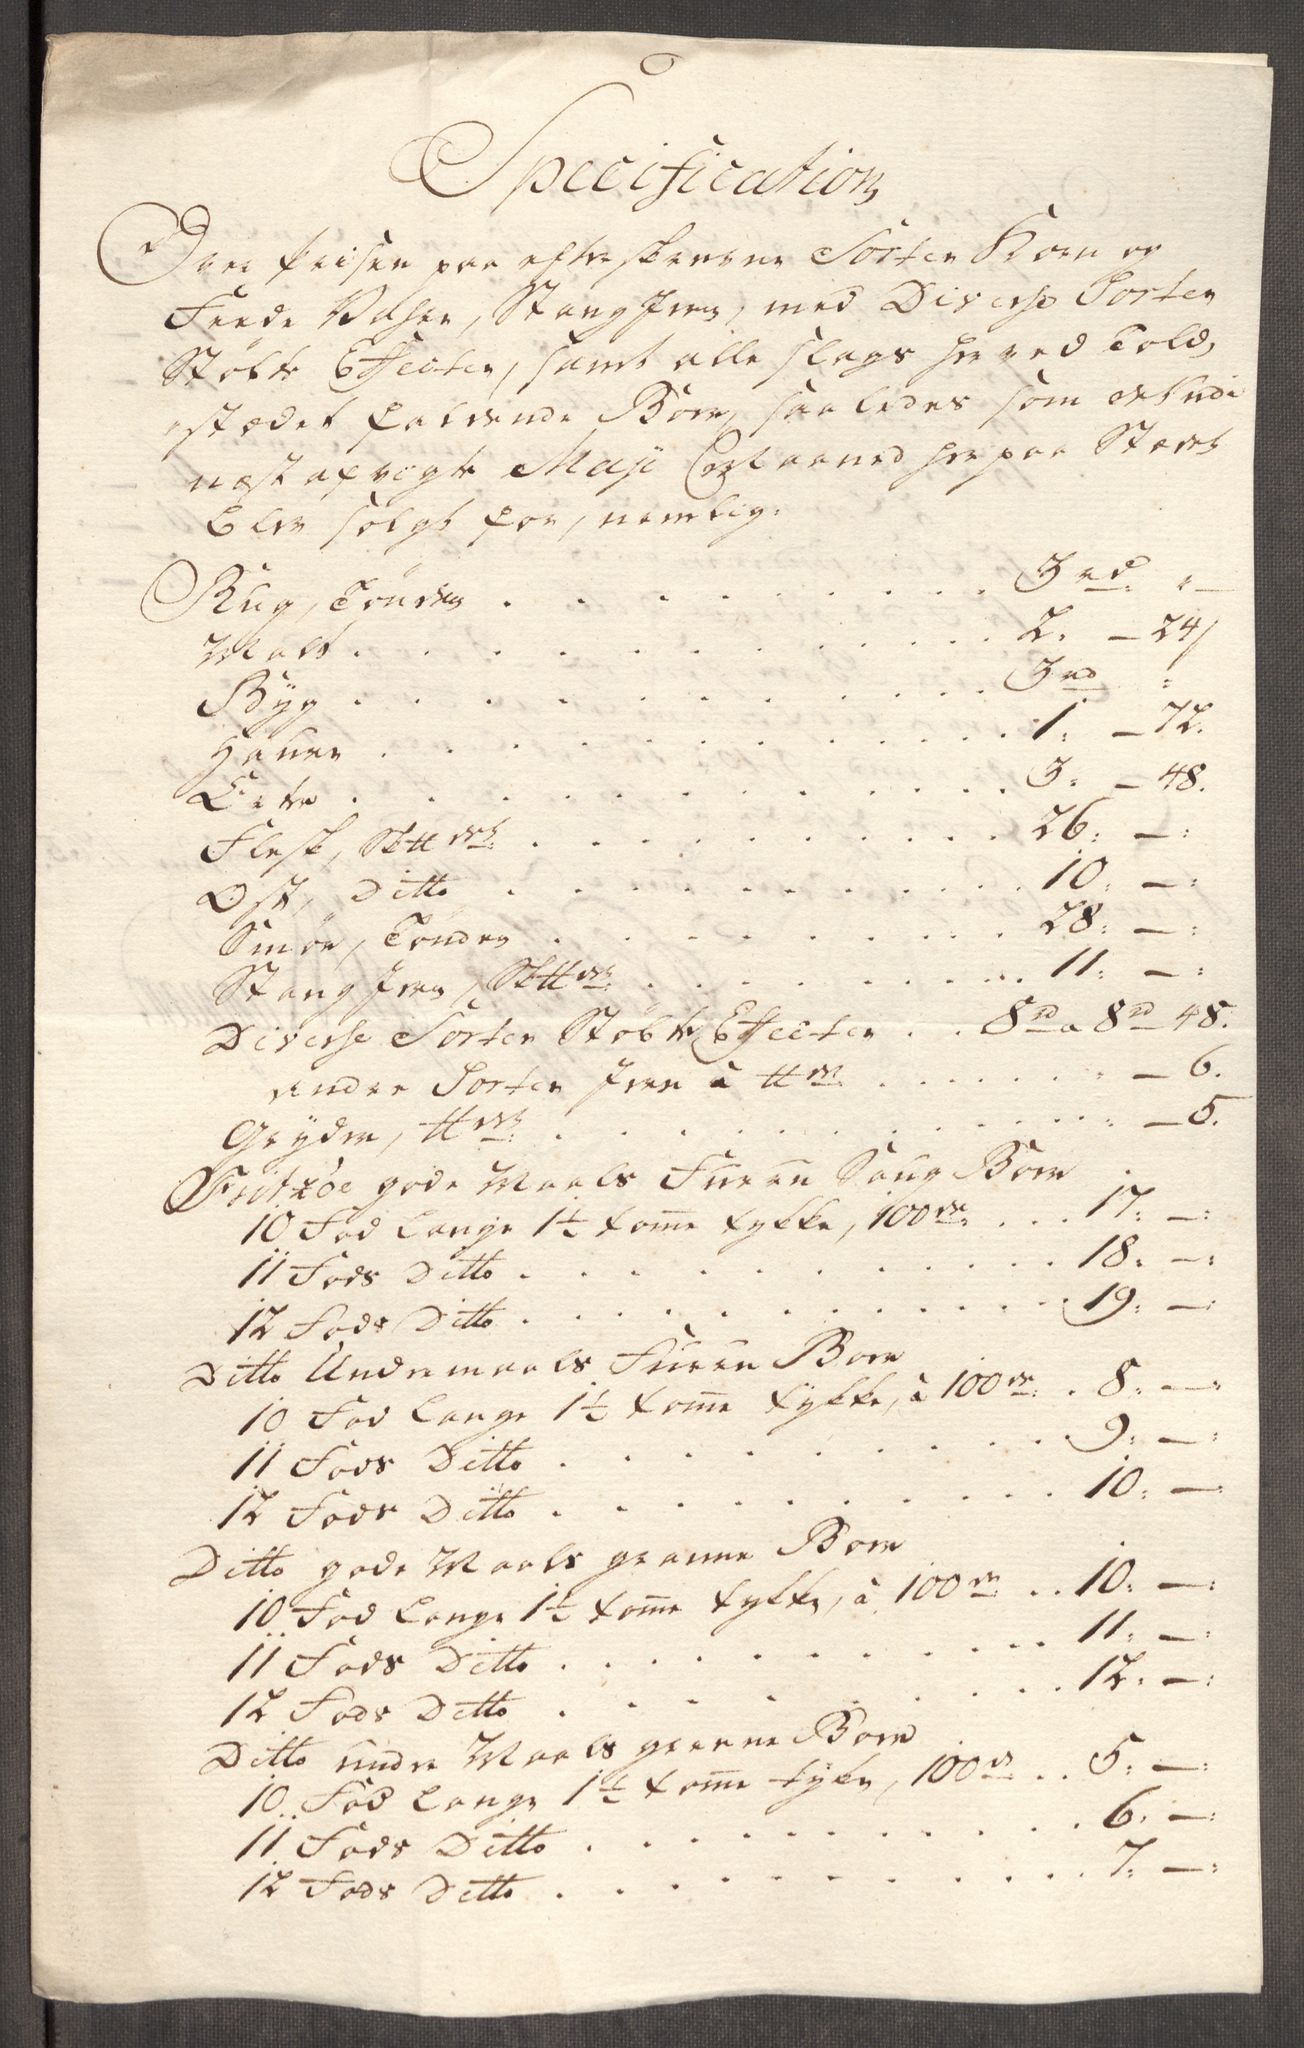 Specification
Over Prisen paa efterskrevne Sorter Korn og
Feede Vahre, Stang Jern, med Diverse Sorter
Støbte Effecter, samt alle slags her ved Told,
stædet faldende Bord, saaledes som det udi
næst afvigte Maji Maaned her paa Stædet
blev solgt for, nemlig.
Rug, Tønden . . . . . . . . 3 rd "—
Malt . . . . . . . . . . 2. — 24 s
Byg . . . . . . . . . . 3 rd "
Hafre . . . . . . . . . . 1. — 72.
Erter . . . . . . . . . . 3: — 48.
Flesk, Sk℔det . . . . . . . . 26: — :
Ost, Ditto . . . . . . . . 10: — :
Smør, Tønden . . . . . . . 28: — :
Stang Jern, Sk℔det . . . . . . 11: — :
Diverse Sorter Støbte Effecter . . 8 rd a 8 rd 48.
andre Sorter Jern à ℔det . . . . . . — 6.
Gryder, ℔det . . . . . . . . . — 5.
Fritzøe gode Maals Furru Saug Bord
10 Fod Lange 1½ tomme tykke, 100de . . . 17: — :
11 Fods Ditto . . . . . . . . 18: — :
12 Fods Ditto . . . . . . . . 19: — :
Ditto Undermaals Furru Bord
10 Fod Lange 1½ tomme tykke, à 100de . . 8: — :
11 Fods Ditto . . . . . . . . 9: — :
12 Fods Ditto . . . . . . . . 10: — :
Ditto gode Maals granne Bord
10 Fod Lange 1½ tomme tykke, à 100de . . 10: — :
11 Fods Ditto . . . . . . . . 11: — :
12 Fods Ditto . . . . . . . . 12: — :
Ditto under Maals granne Bord
10 Fod Lange 1½ tomme tyke, 100de . . 5: — :
11 Fods Ditto . . . . . . . . 6: — :
12 Fods Ditto . . . . . . . . 7: — :